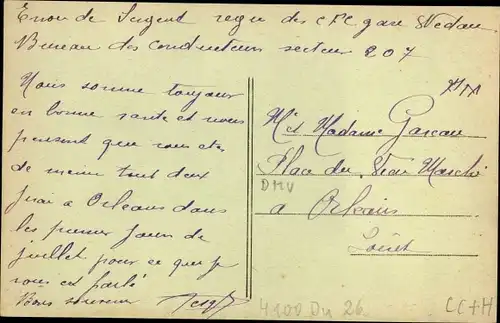 Envoi de Sergent regie des C F C gare Sedan
Bureau des conducteurs secteur 207
Nous somme toujour
en bonne sante et nous
pensont que vous ete
de meme tout deux
J'irai a Orleans dans
les premier jour de
juillet pour ce que je
vous est parlé
Bons souvenir
Mr et Madame Garcau
Place du Vieux Marché
DMV
a Orleans
Loiret
4100 Du 26
CC+H